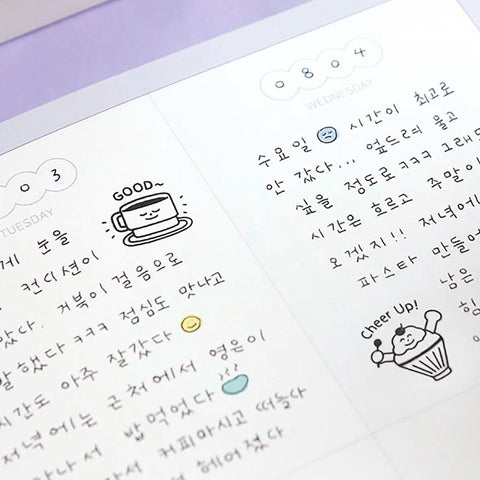 03
TUESDAY
GOOD~
게 눈을
컨디션이
았다. 거북이 걸음으로
발했다ㅋㅋㅋ 점심도 맛나고
시간도 아주 잘갔다
저녁에는 근처에서 영은이
만나서 밥먹었다
커피마시고 떠들다
헤어졌다.
0804
WEDNESDAY
수요일 시간이 최고로
안 갔다... 엎드려 울고
싶을 정도로ㅋㅋㅋ 그래도
시간은 흐르고 주말이
오겠지!! 저녁에
파스타 만들어
남은
힘
Cheer Up!